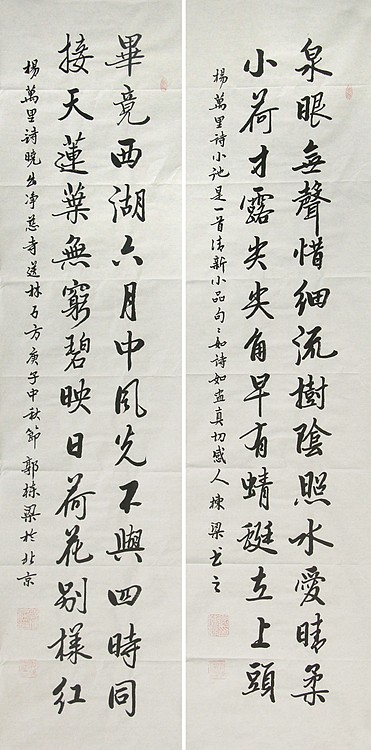 泉眼無聲惜細流樹陰照水愛晴柔
小荷才露尖尖角早有蜻蜓立上頭
楊萬里詩小池是一首清新小品句〻如詩如畫真切感人棟梁书之
畢竟西湖六月中風光不與四時同
接天蓮葉無窮碧映日荷花别樣紅
楊萬里詩曉出净慈寺送林子方庚子中秋節郭棟梁於北京